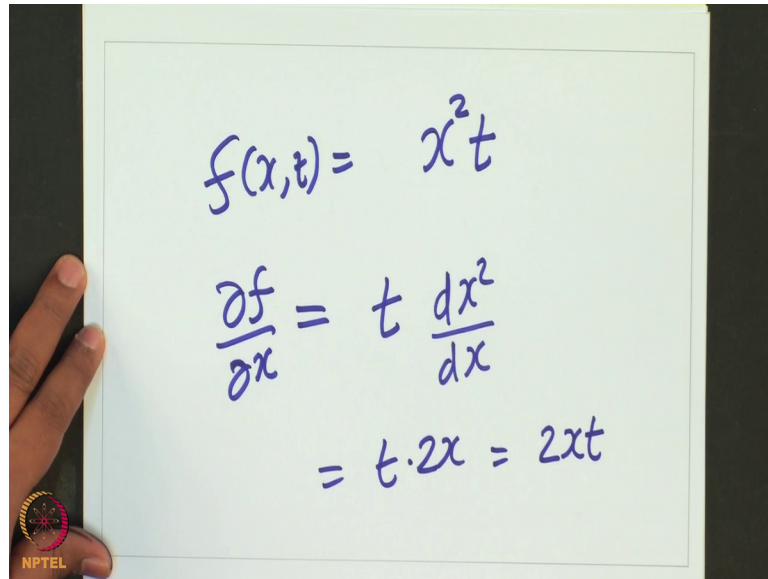 f(x,t) = x²t
∂f/∂x = t dx²/dx
= t·2x = 2xt
NPTEL